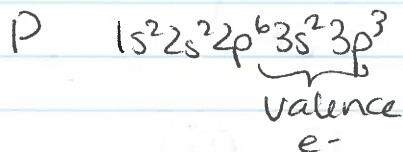 P 1s²2s²2p⁶3s²3p³
valence
e-